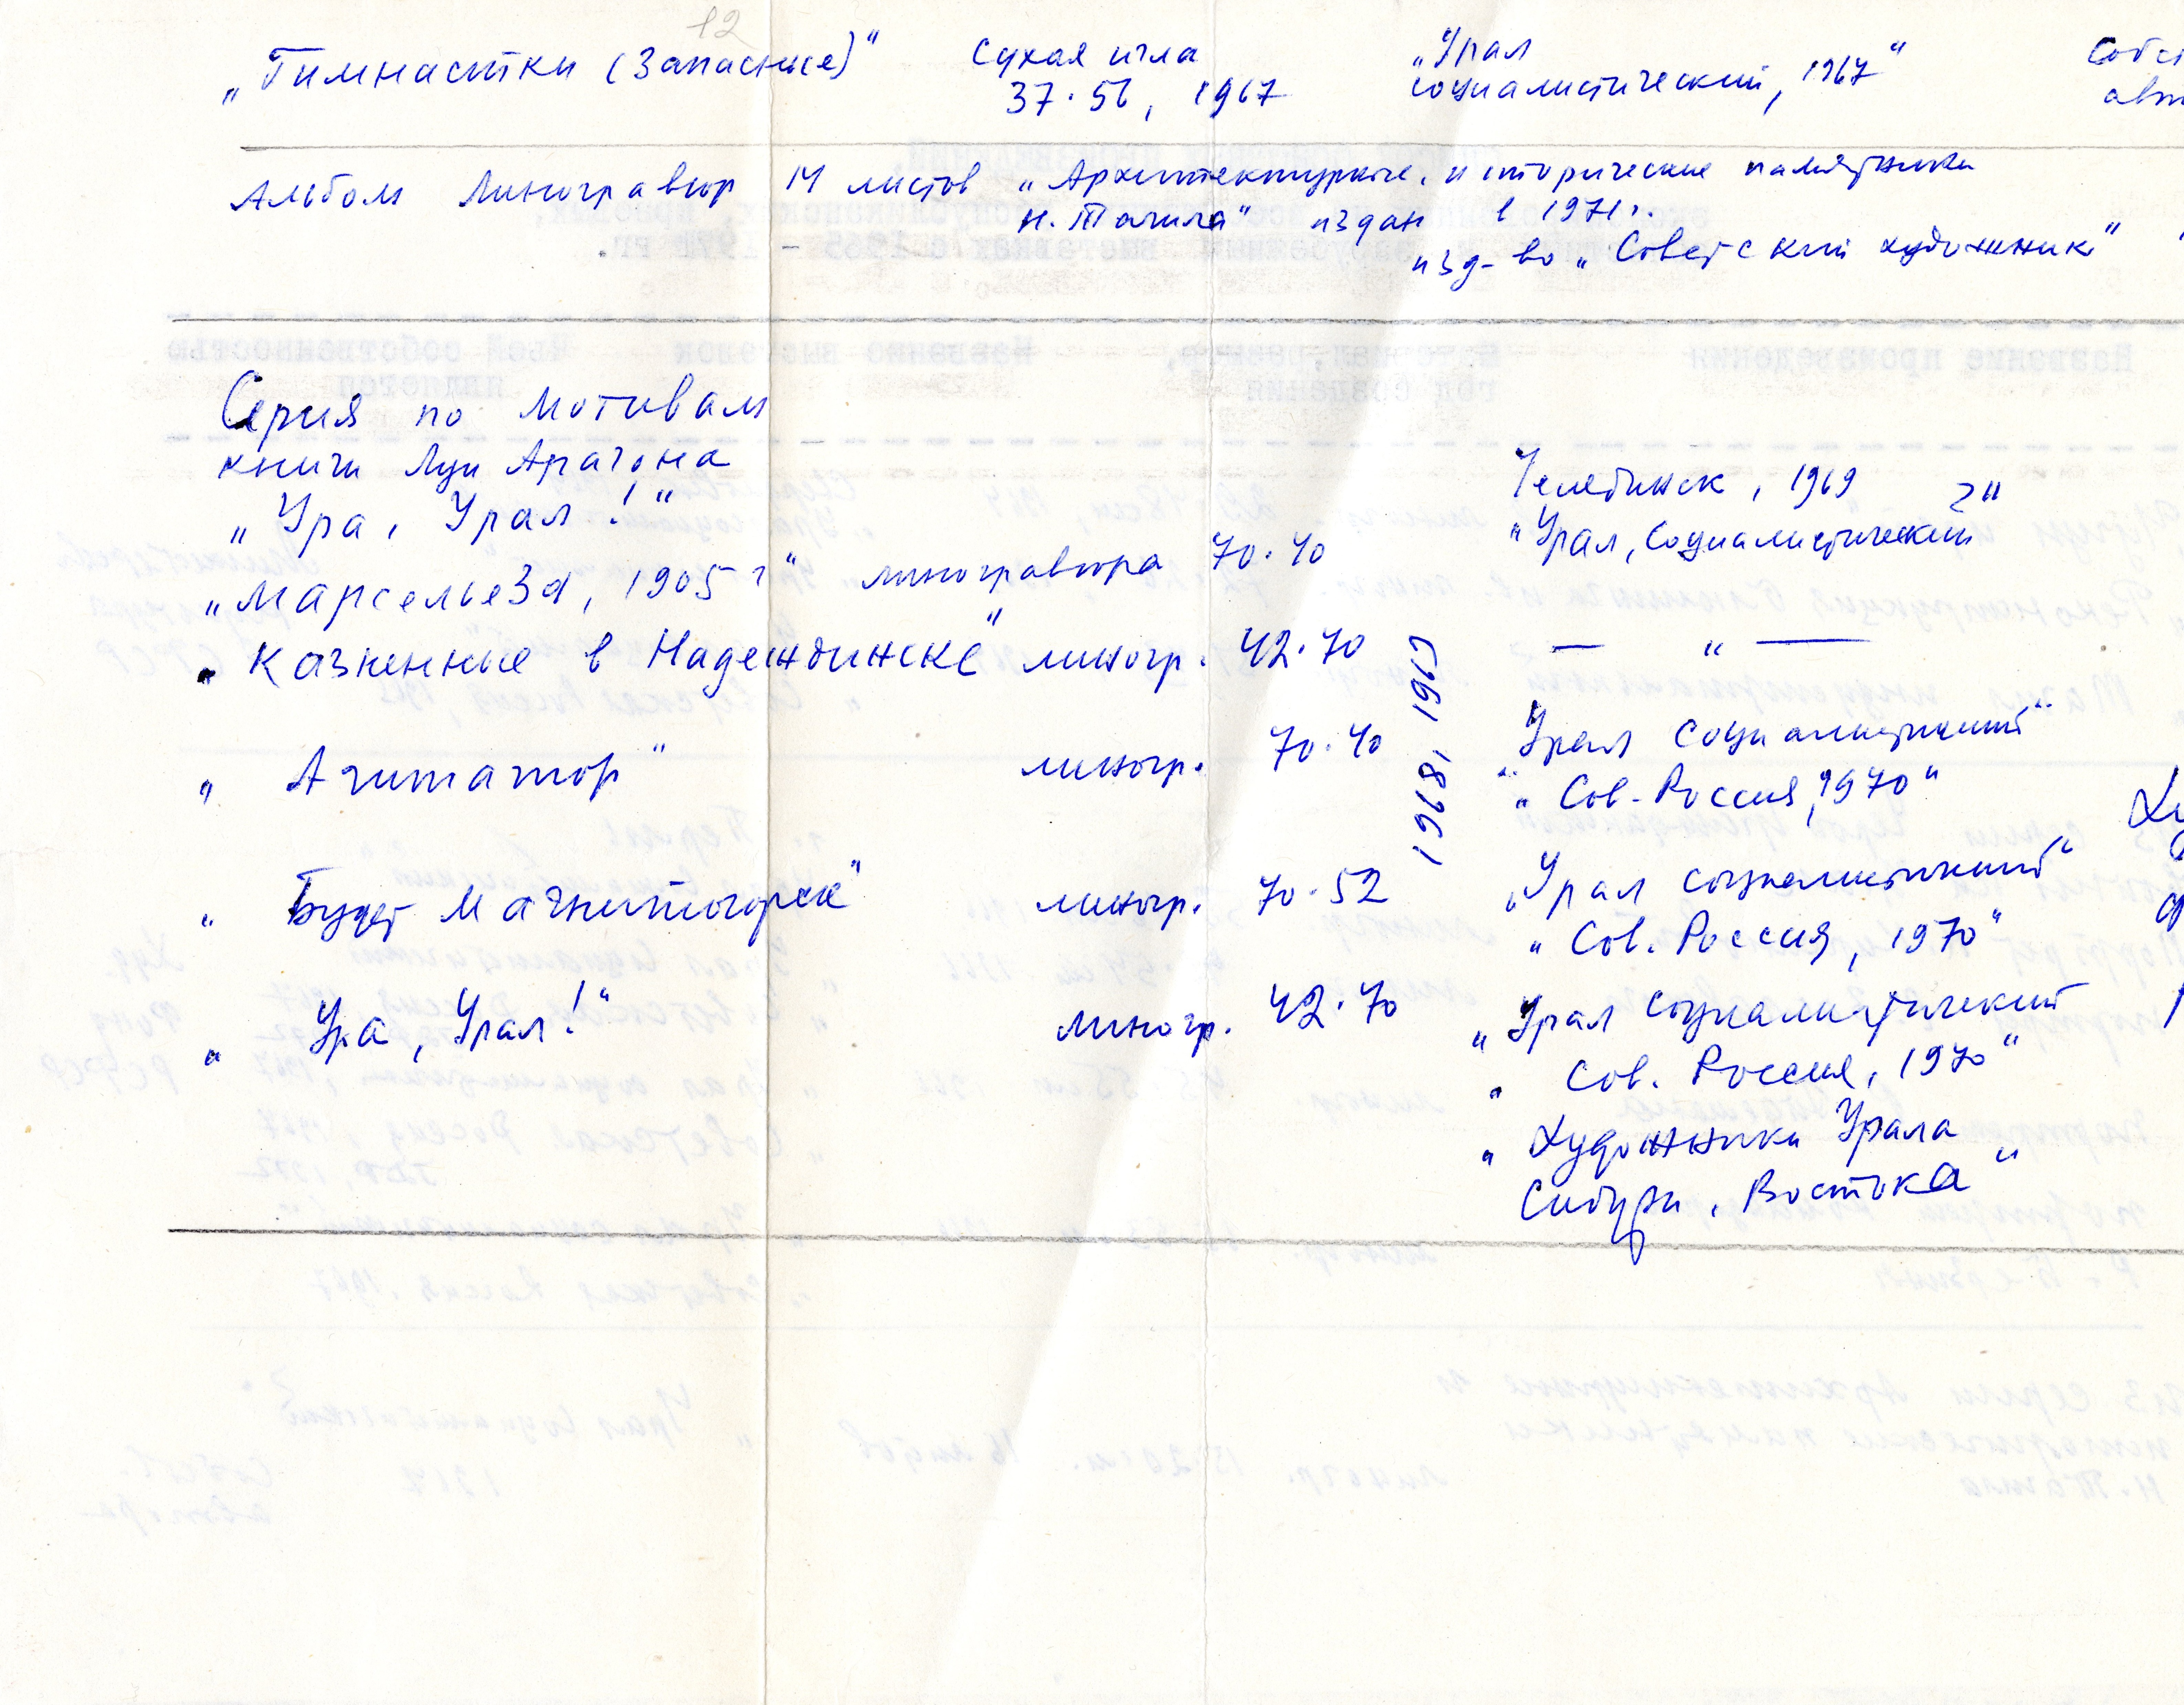 12
„Гимнастки (Запасные)" Сухая игла „Урал Собст
37·56, 1967 социалистический, 1967" авт
Альбом Линогравюр 14 листов „Архитектурные, исторические памятники
Н. Тагила" издан в 1971г.
изд-во „Советский художник"
Серия по мотивам
книги Луи Арагона
„Ура, Урал!"
Челябинск, 1969
„Марсельеза, 1905 г" линогравюра 70·40 „Урал, Социалистический"
„Казненные в Надеждинске" линогр. 42·70 — " —
1968, 1969
„Агитатор" линогр. 70·40 „Урал социалистический"
„Сов. Россия, 1970"
„Будет Магнитогорск" линогр. 70·52 „Урал социалистический"
„Сов. Россия, 1970"
„Ура, Урал!" линогр. 42·70 „Урал социалистический
„Сов. Россия, 1970"
„Художники Урала
Сибири, Востока"